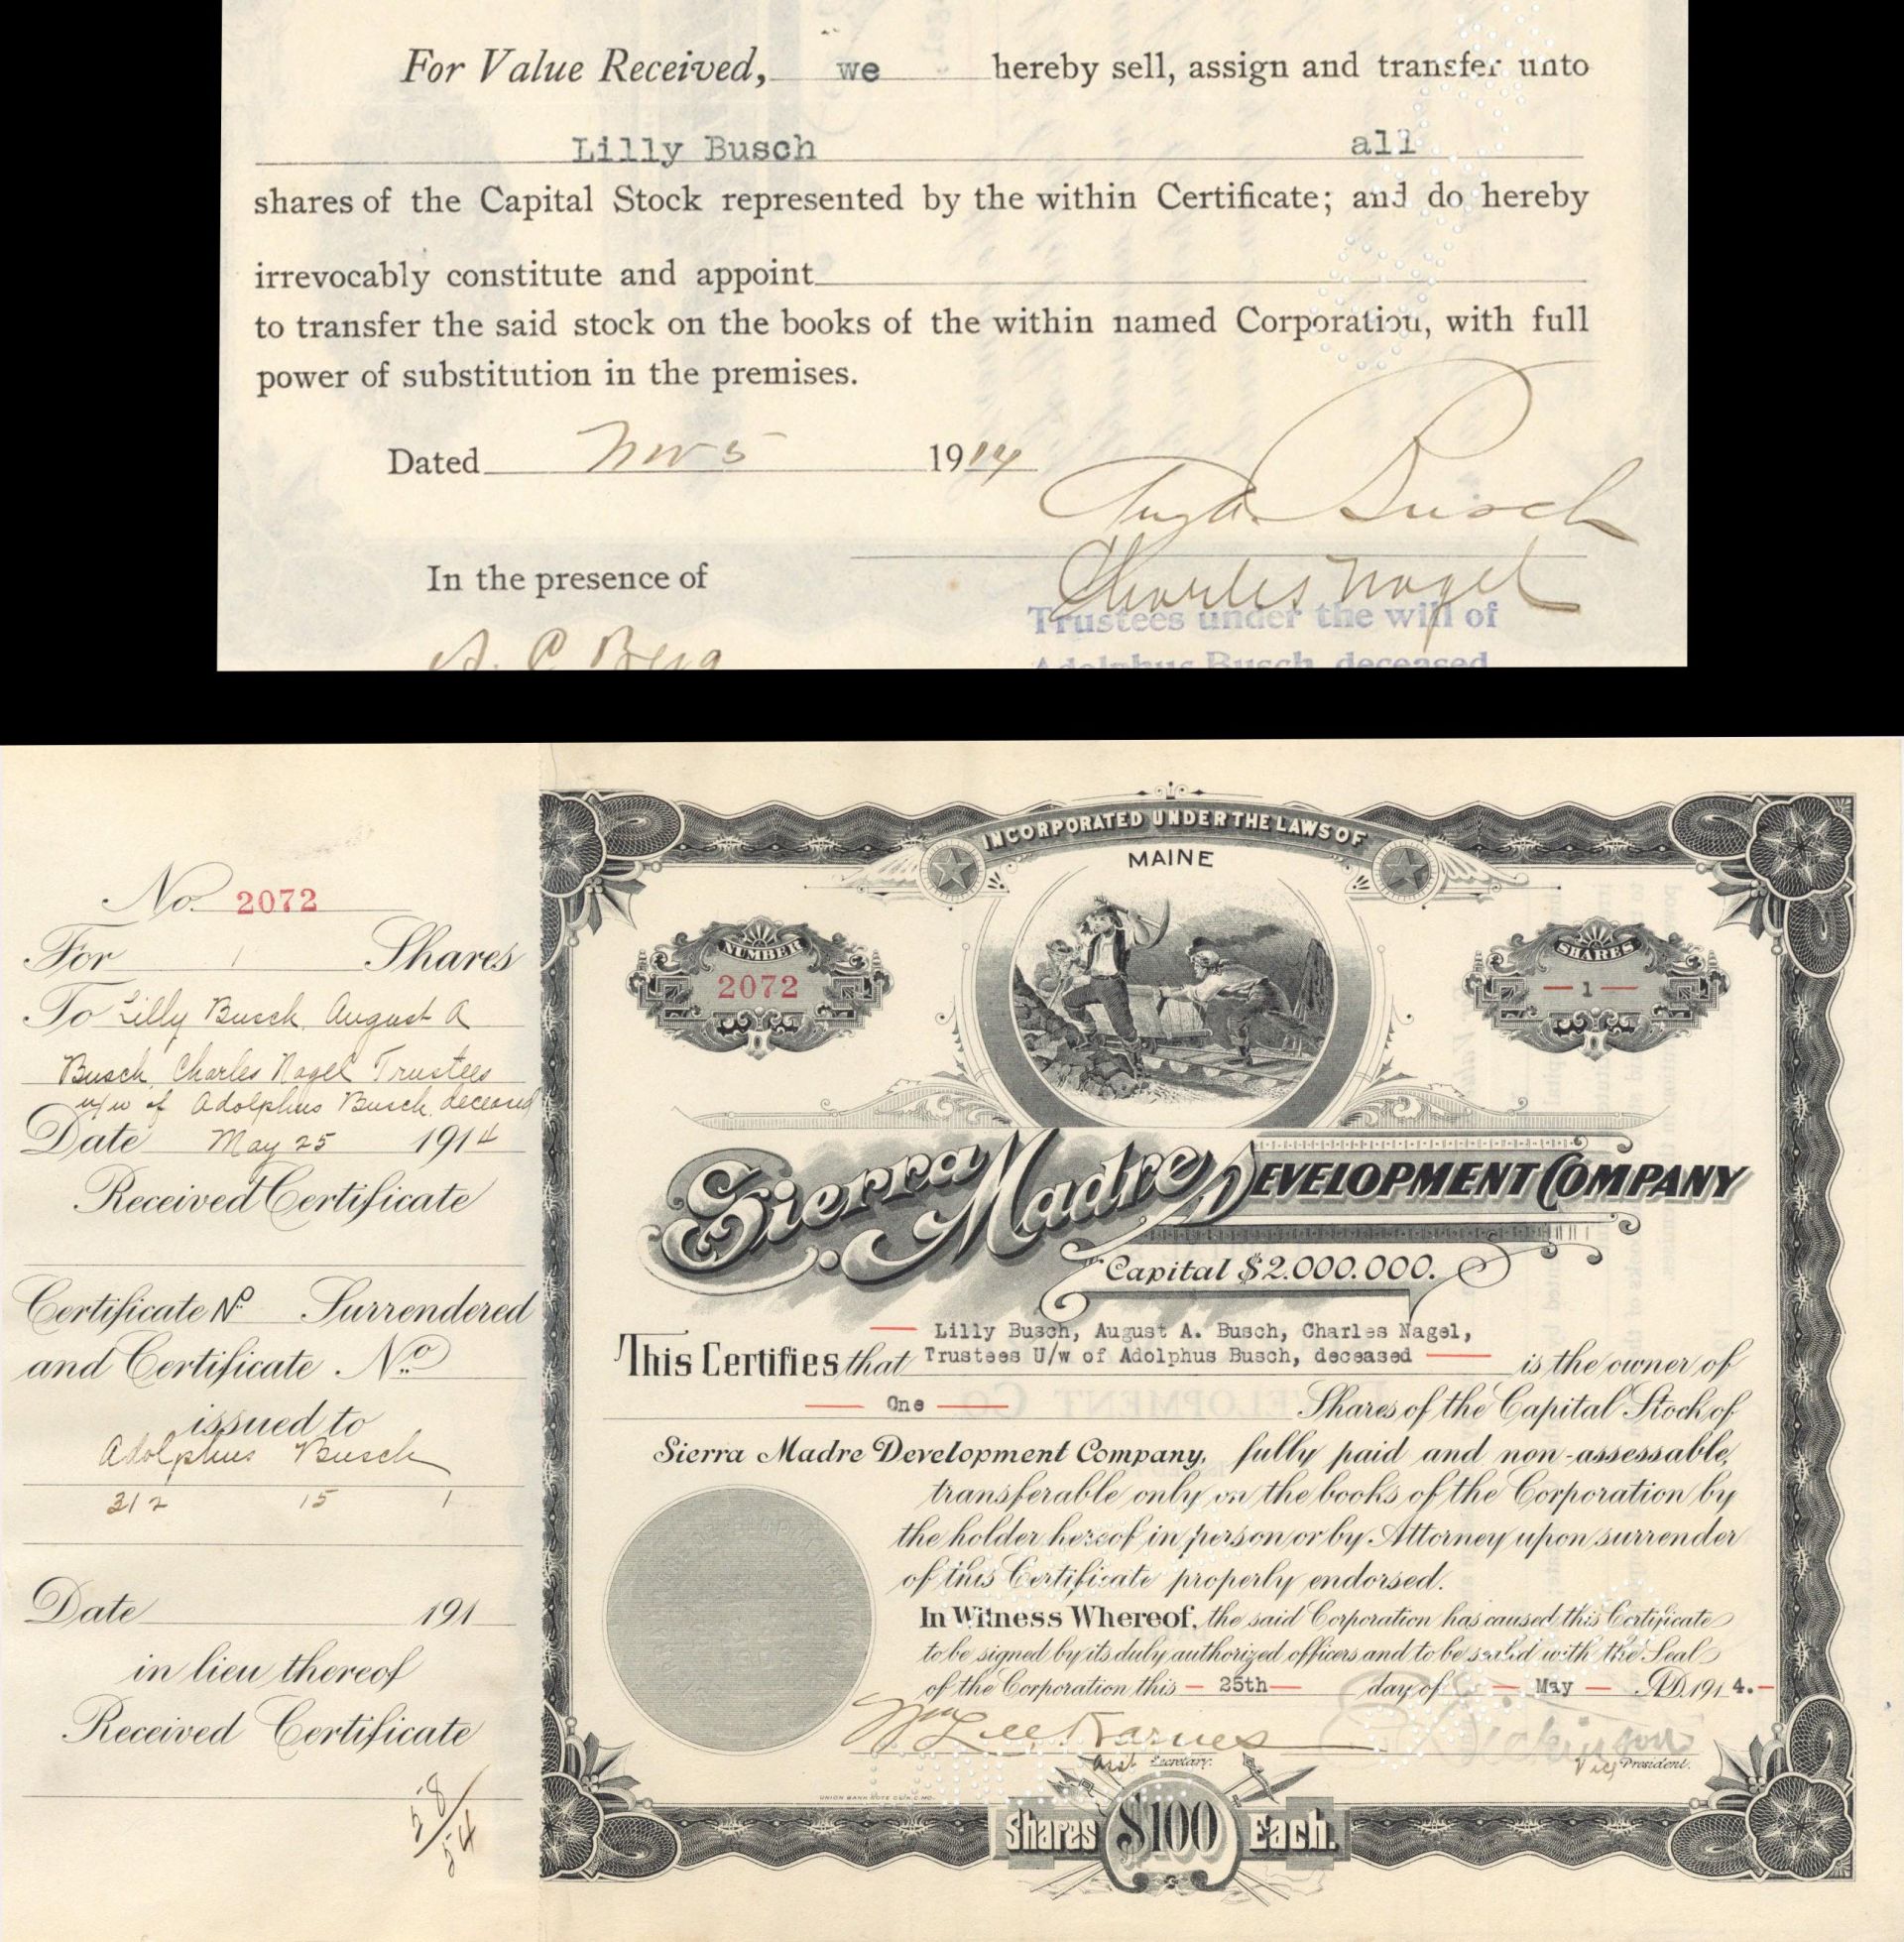 For Value Received, we hereby sell, assign and transfer unto
Lilly Busch all
shares of the Capital Stock represented by the within Certificate; and do hereby
irrevocably constitute and appoint
to transfer the said stock on the books of the within named Corporation, with full
power of substitution in the premises.
Dated Nov 5 1914
Aug A. Busch
Charles Nagel
In the presence of
Trustees under the will of
Adolphus Busch, deceased
No. 2072
For 1 Shares
To Lilly Busch, August A
Busch, Charles Nagel Trustees
u/w of Adolphus Busch, deceased
Date May 25 1914
Received Certificate
Certificate No. Surrendered
and Certificate No.
issued to
Adolphus Busch
312 15 1
Date 191
in lieu thereof
Received Certificate
INCORPORATED UNDER THE LAWS OF
MAINE
NUMBER
2072
SHARES
1
Sierra Madre DEVELOPMENT COMPANY
Capital $2.000.000.
Lilly Busch, August A. Busch, Charles Nagel,
This Certifies that Trustees U/w of Adolphus Busch, deceased is the owner of
One Shares of the Capital Stock of
Sierra Madre Development Company, fully paid and non-assessable,
transferable only on the books of the Corporation by
the holder hereof in person or by Attorney upon surrender
of this Certificate properly endorsed.
In Witness Whereof, the said Corporation has caused this Certificate
to be signed by its duly authorized officers and to be sealed with the Seal
of the Corporation this 25th day of May A.D. 1914.
Wm Lee Karnes
Asst Secretary.
Dickinson
Vice President.
Shares $100 Each.